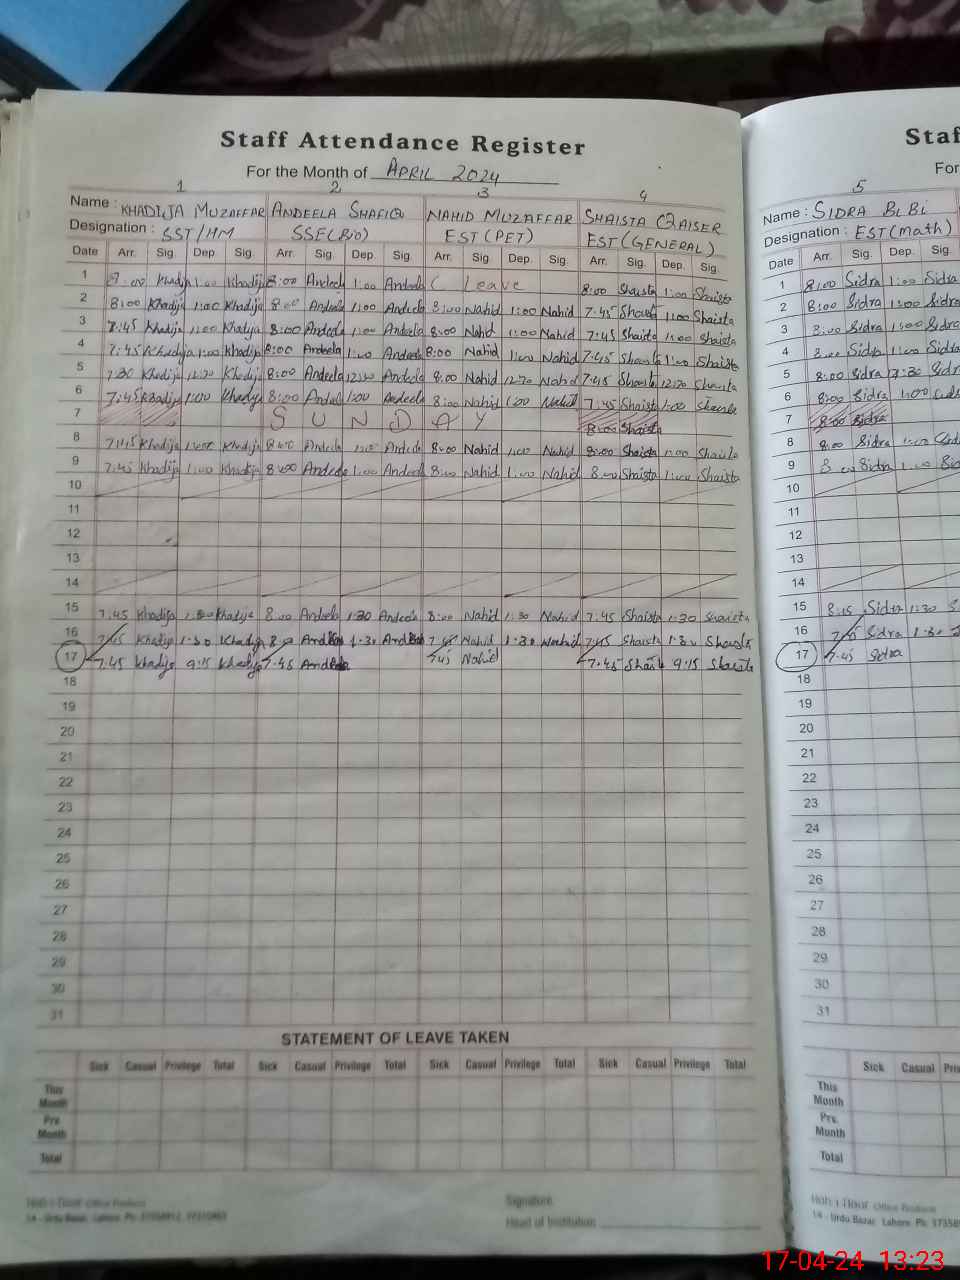 Staff Attendance Register
For the Month of APRIL 2024
1 2 3 4
Name : KHADIJA MUZAFFAR ANDEELA SHAFIQ NAHID MUZAFFAR SHAISTA QAISER
Designation : SST/HM SSE(Bio) EST(PET) EST(GENERAL)
Date Arr. Sig. Dep. Sig. Arr. Sig. Dep. Sig. Arr. Sig. Dep. Sig. Arr. Sig. Dep. Sig.
1 Khadija 1:00 Khadija 8:00 Andeela 1:00 Andeela C Leave 8:00 Shaista 1:00 Shaista
2 8:00 Khadija 1:00 Khadija 8:00 Andeela 1:00 Andeela 8:00 Nahid 1:00 Nahid 7:45 Shaista 1:00 Shaista
3 7:45 Khadija 1:00 Khadija 8:00 Andeela 1:00 Andeela 8:00 Nahid 1:00 Nahid 7:45 Shaista 1:00 Shaista
4 7:45 Khadija 1:00 Khadija 8:00 Andeela 1:00 Andeela 8:00 Nahid 1:00 Nahid 7:45 Shaista 1:00 Shaista
5 7:30 Khadija 12:30 Khadija 8:00 Andeela 12:30 Andeela 8:00 Nahid 12:30 Nahid 7:45 Shaista 12:30 Shaista
6 7:45 Khadija 1:00 Khadija 8:00 Andeela 1:00 Andeela 8:00 Nahid 1:00 Nahid 7:45 Shaista 1:00 Shaista
7 SUNDAY 8:00 Shaista
8 7:45 Khadija 1:00 Khadija 8:00 Andeela 1:00 Andeela 8:00 Nahid 1:00 Nahid 8:00 Shaista 1:00 Shaista
9 7:45 Khadija 1:00 Khadija 8:00 Andeela 1:00 Andeela 8:00 Nahid 1:00 Nahid 8:00 Shaista 1:00 Shaista
10
11
12
13
14
15 7.45 Khadija 1:30 Khadija 8:00 Andeela 1:30 Andeela 8:00 Nahid 1:30 Nahid 7.45 Shaista 1:30 Shaista
16 7:45 Khadija 1.30 Khadija Andeela 1.30 Andeela 7.45 Nahid 1.30 Nahid 7.45 Shaista 1.30 Shaista
17 7.45 Khadija 9:15 Khadija 7.45 Andeela 7.45 Nahid 7.45 Shaista 9:15 Shaista
18
19
20
21
22
23
24
25
26
27
28
29
30
31
STATEMENT OF LEAVE TAKEN
Sick Casual Privilege Total Sick Casual Privilege Total Sick Casual Privilege Total Sick Casual Privilege Total
This Month
Pre. Month
Total
Signature
Head of Institution
14 - Urdu Bazar, Lahore. Ph:
Staf
For
5
Name : SIDRA BiBi
Designation : EST(math)
Date Arr. Sig. Dep. Sig.
1 8:00 Sidra 1:00 Sidra
2 8:00 Sidra 1:00 Sidra
3 8:00 Sidra 1:00 Sidra
4 8:00 Sidra 1:00 Sidra
5 8:00 Sidra 12:30 Sidra
6 8:00 Sidra 1:00
7 8:00 Sidra
8 8:00 Sidra 1:00
9 8:00 Sidra 1:00
10
11
12
13
14
15 8:15 Sidra 1:30 S
16 7:45 Sidra 1.30
17 7.45 Sidra
18
19
20
21
22
23
24
25
26
27
28
29
30
31
Sick Casual Priv
This Month
Pre. Month
Total
14 - Urdu Bazar, Lahore. Ph:
17-04-24 13:23